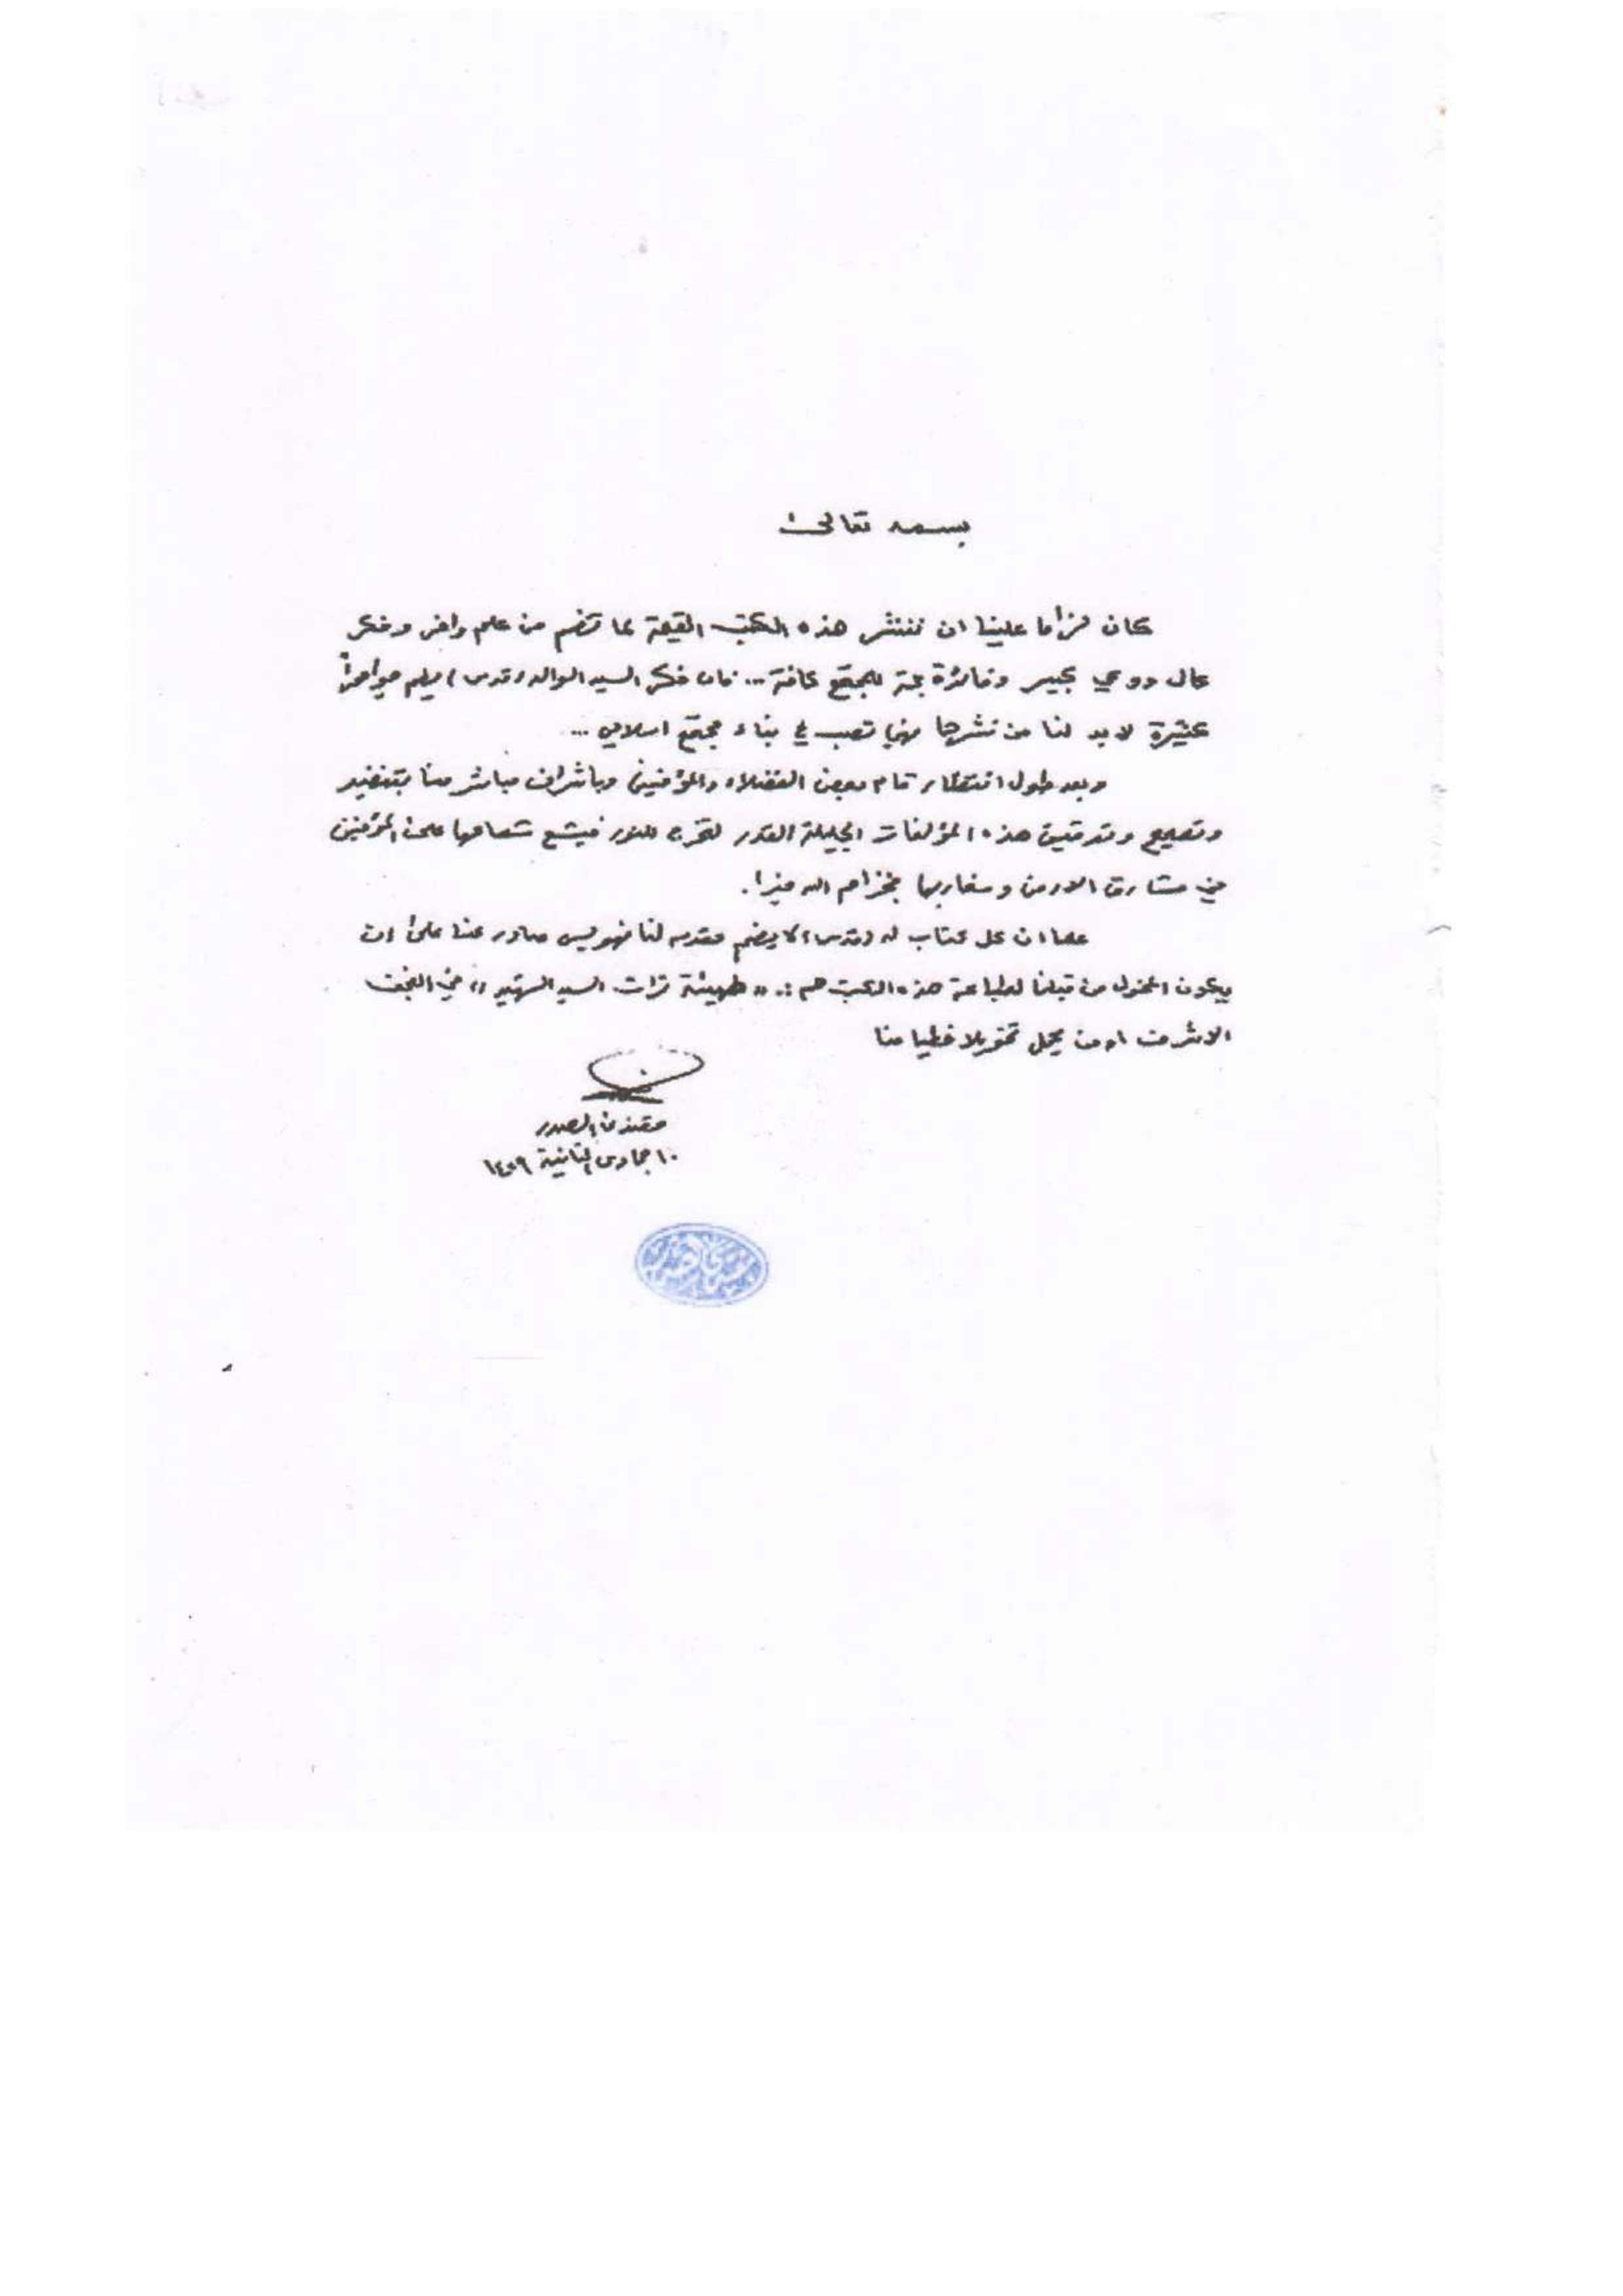 بسمه تعالى
كان لزاما علينا ان ننشر هذه الكتب القيمة لما تضم من علم وافر وفكر
عال ووعي كبير وفائدة جمة للمجتمع كافة ... فان فكر السيد الوالد (قدس) يضم جواهراً
كثيرة لا بد لنا من نشرها فهي تصب في بناء مجتمع اسلامي ...
وبعد طول انتظار قام بعض الفضلاء والمؤمنين وباشراف مباشر منا بتنضيد
وتصحيح وتدقيق هذه المؤلفات الجليلة القدر لتخرج للنور فيشع شعاعها على المؤمنين
في مشارق الارض ومغاربها فجزاهم الله خيرا.
علما ان كل كتاب له (قدس) لا يضم مقدمه لنا فهو ليس صادر عنا على ان
يكون المخول من قبلنا لطباعة هذه الكتب هم :. « هيئة تراث السيد الشهيد » في النجف
الاشرف او من يحمل تخويلا خطيا منا
مقتدى الصدر
١٠ جمادى الثانية ١٤٢٩